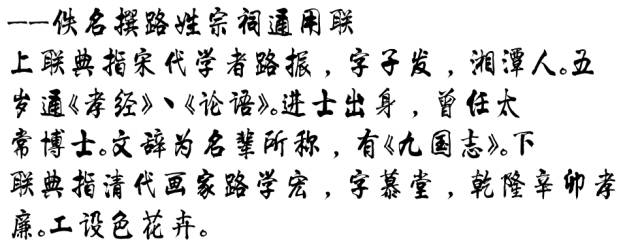 ——佚名撰路姓宗祠通用联
上联典指宋代学者路振，字子发，湘潭人。五
岁通《孝经》、《论语》。进士出身，曾任太
常博士。文辞为名辈所称，有《九国志》。下
联典指清代画家路学宏，字慕堂，乾隆辛卯孝
廉。工设色花卉。